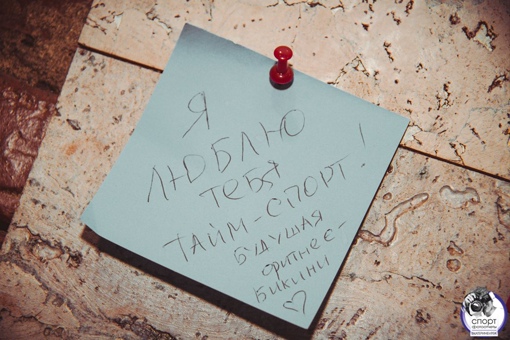 Я
ЛЮБЛЮ
ТЕБЯ
ТАЙМ-СПОРТ!
БУДУЩАЯ
ФИТНЕС-
БИКИНИ ♡
СПОРТ